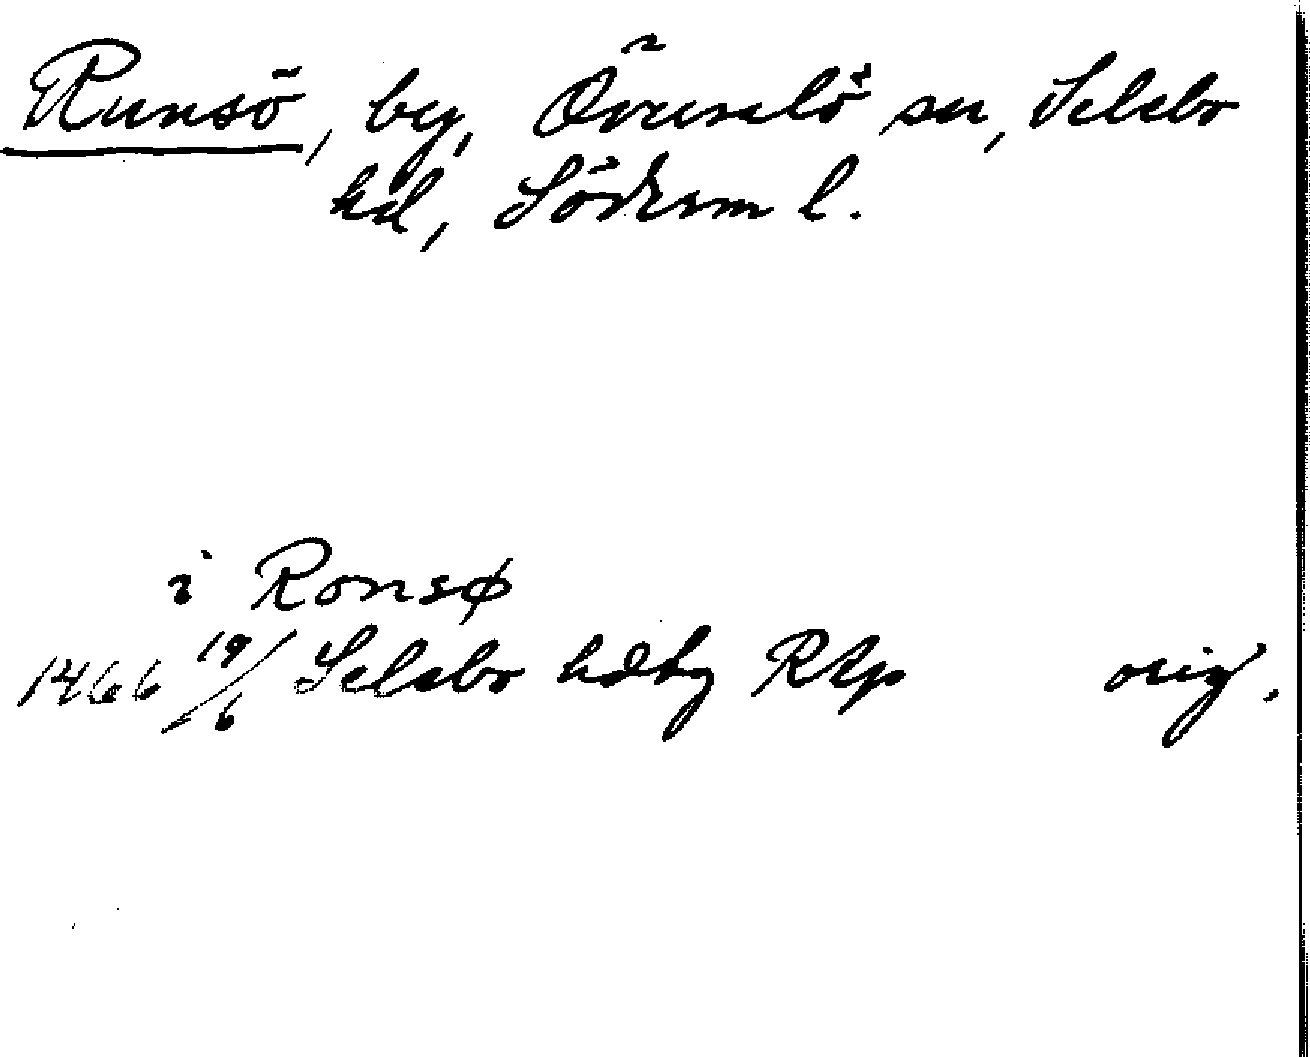 Runsö, by, Överselö sn, Selebo
hd, Söderm l.
i Ronsø
1466 19/6 Selebo hdtg RAp orig.